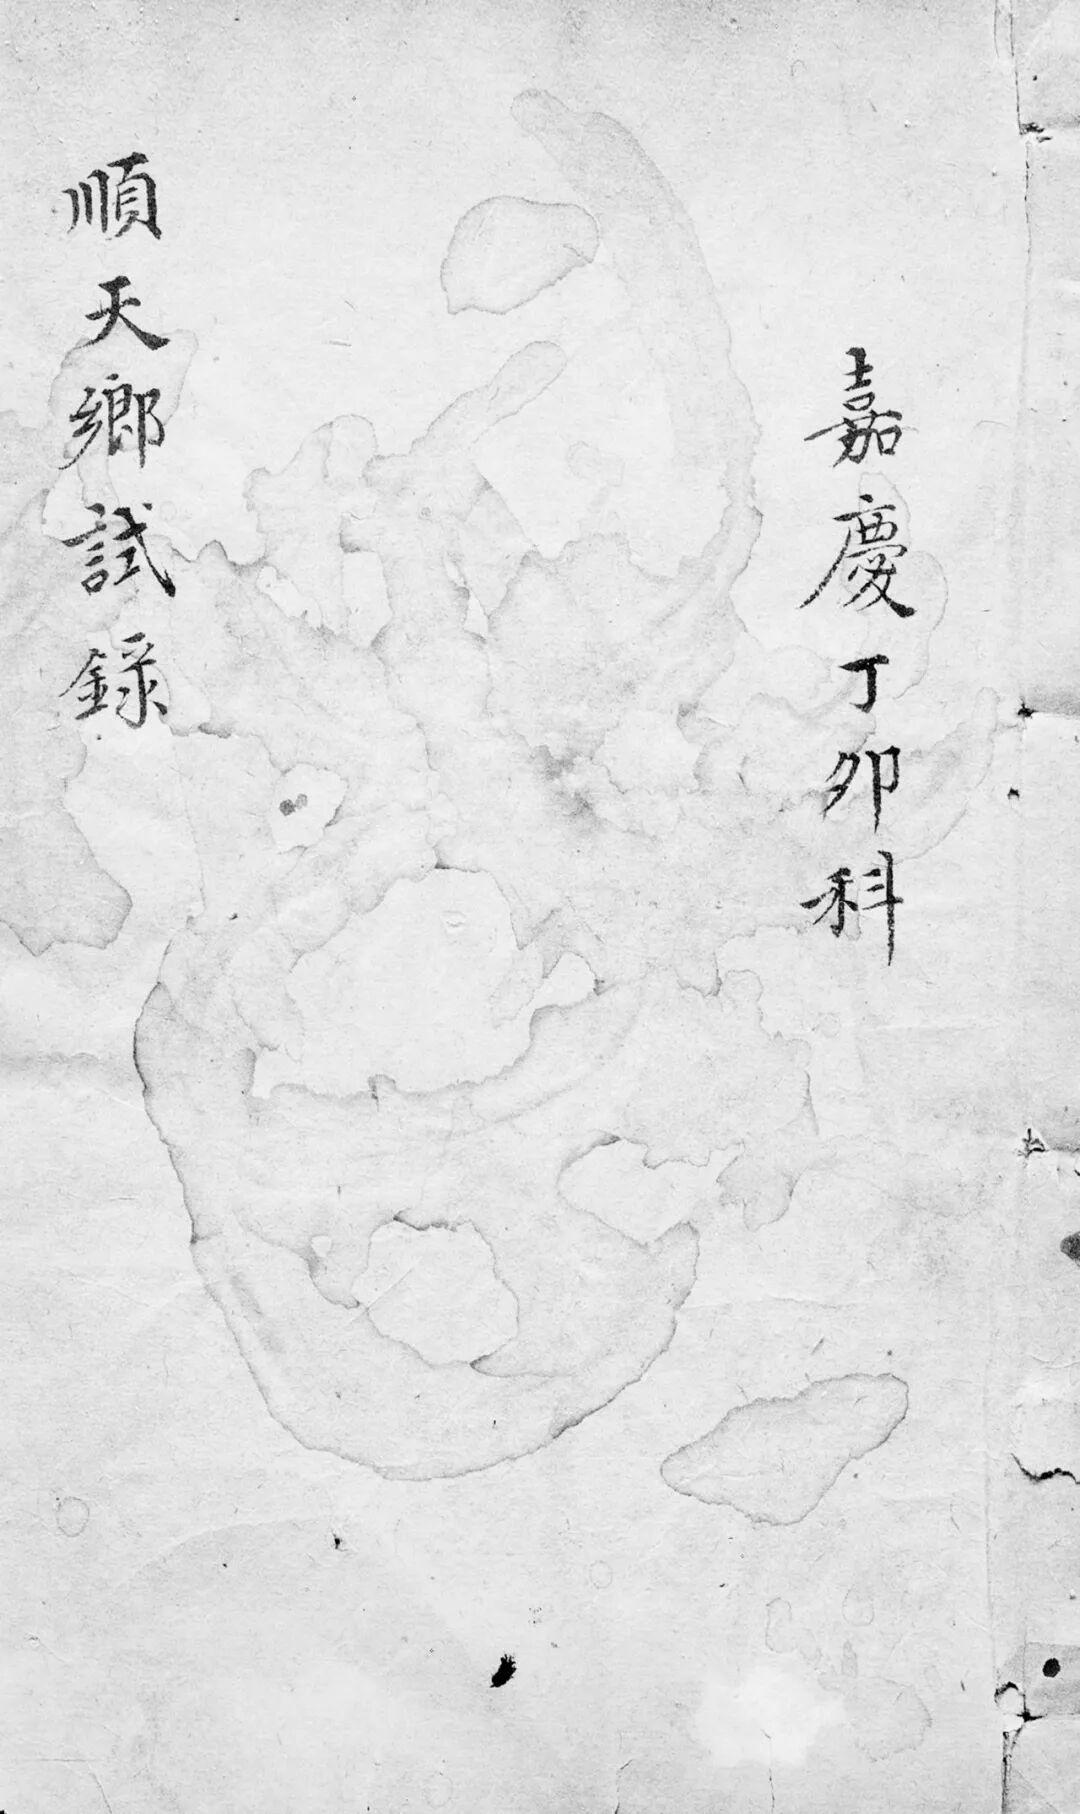 嘉慶丁卯科
順天鄉試錄